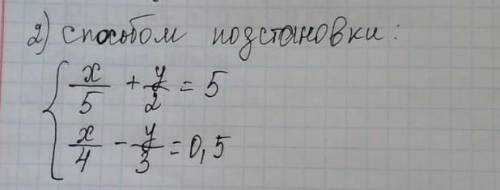 2) способом подстановки:
x/5 + y/2 = 5
x/4 - y/3 = 0,5